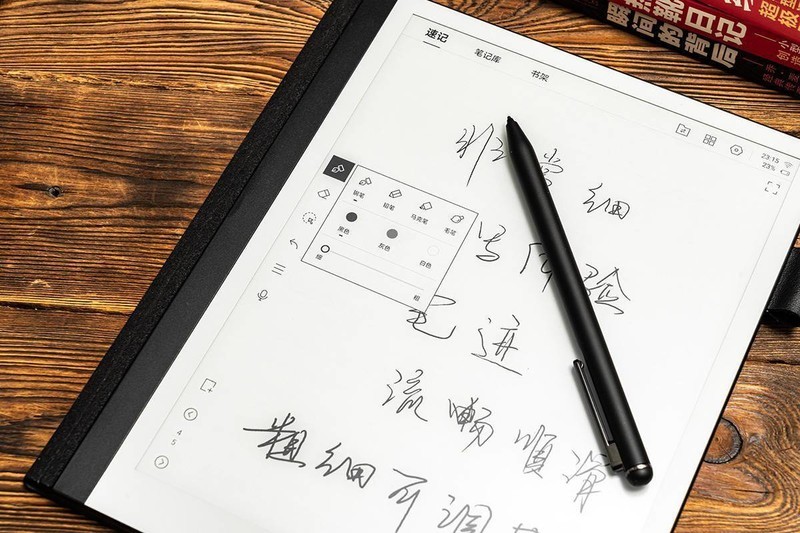 速记 笔记库 书架
23:15
23%
钢笔 铅笔 马克笔 毛笔
黑色 灰色 白色
细 粗
4
5
非常细
写 体验
笔迹
流畅顺滑
粗细可调节
日记
瞬间的背后